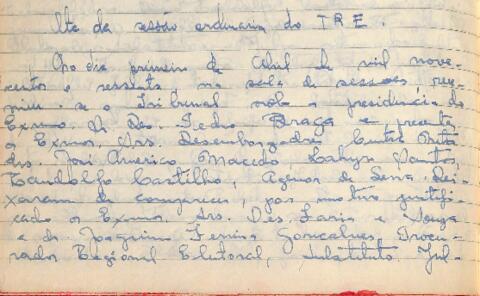 Ata da sessão ordinaria do TRE.
Ao dia primeiro de Abril de mil nove-
centos e sessenta na sala de sessões, reu-
niu-se o Tribunal sob a presidencia do
Exmo. Sr. Des. Pedro Braga e, presente
o Exmos. Srs. Desembargador
drs. José Americo Macedo, Santos,
Landolfo Castilho, Agenor de Sena. Dei-
xaram de comparecer, por motivo justifi-
cado o Exmos. Srs. Des. Faria e Souza
e dr. Joaquim Ferreira Gonçalves, Procu-
rador Regional Eleitoral, Substituto. Jul-